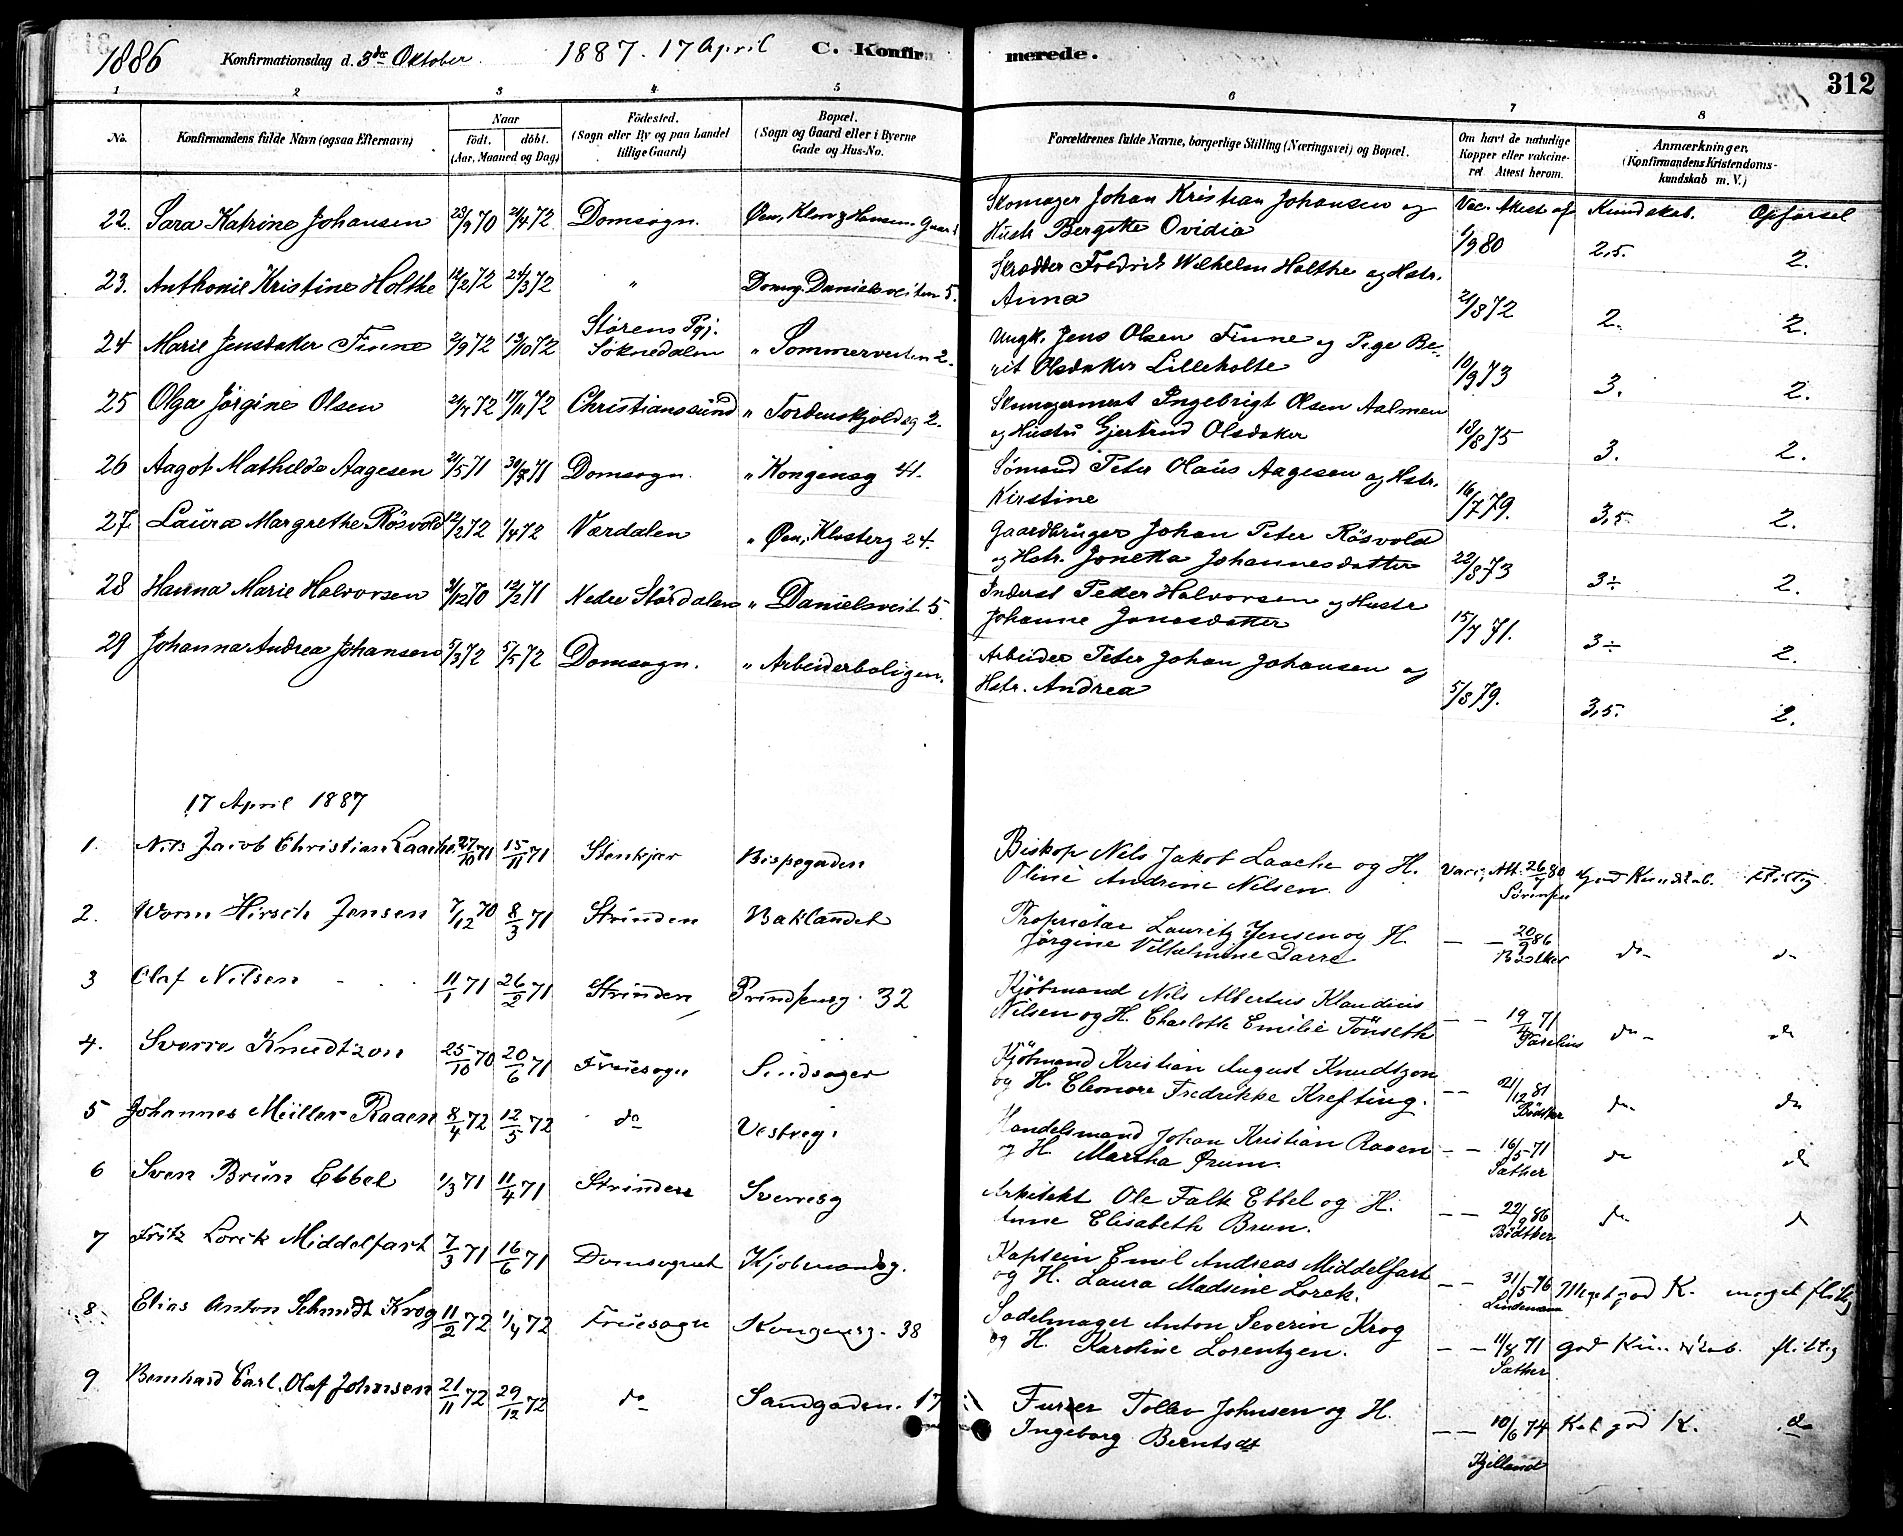 1886 Konfirmationsdag d. 3die Oktober. 1887. 17 April C. Konfirmerede. 312
1 2 3 4 5 6 7 8
No. Konfirmandens fulde Navn (ogsaa Efternavn) Naar født. døbt. (Aar, Maaned og Dag) Fødested. (Sogn eller By og paa Landet tillige Gaard) Bopæl. (Sogn og Gaard eller i Byerne Gade og Hus-No. Forældrenes fulde Navne, borgerlige Stilling (Næringsvei) og Bopæl. Om havt de naturlige Kopper eller vakcineret. Attest herom. Anmærkninger. (Konfirmandens Kristendomskundskab m. V.)
22. Sara Katrine Johansen 23/9 70 21/4 72 Domsogn. Øen, Gaard Skomager Johan Kristian Johansen og Vac. Attest af Kundskab. Opførsel
Hustr Bergitte Ovidia 1/9 80 2,5. 2.
23. Anthonie Kristine Holthe 19/2 72 24/3 72 " Domsg. Danielsveiten 5. Skrædder Fredrik Wilhelm Holthe og Hstr.
Anna 21/8 72 2. 2.
24 Marie Jensdatter Finne 2/9 72 13/10 72 Størens Pgj. Søknedalen " Sommerveiten 2. Ungk. Jens Olsen Finne og Pige Be-
rit Olsdatter Lilleholte 10/9 73 3. 2.
25 Olga Jørgine Olsen 21/7 72 17/11 72 Christianssund " Tordenskjoldsg 2. Skomagermest Ingebrigt Olsen Aalmen
og Hustru Gjertrud Olsdatter 18/8 75 3. 2.
26 Aagot Mathilde Aagesen 21/5 71 30/7 71 Domsogn. " Kongensg 41. Sømand Peter Olaus Aagesen og Hstr.
Kirstine 16/7 79. 3,5. 2.
27. Laura Margrethe Røsvold 12/2 72 1/4 72 Værdalen " Øen, Klosterg 24. Gaardbruger Johan Peter Røsvold
og Hstr. Jonetta Johannesdatter 22/8 73 3÷ 2.
28 Hanna Marie Halvorsen 31/12 70 12/2 71 Nedre Stördalen " Danielsveit 5. Inderst Peder Halvorsen og Hustr
Johanne Jonasdatter 15/7 71. 3÷ 2.
29 Johanna Andrea Johansen 5/3 72 5/5 72 Domsogn. " Arbeiderboligen. Arbeider Peter Johan Johansen og
Hstr. Andrea 5/8 79. 3,5. 2.
17 April 1887
1. Nils Jacob Christian Laache 27/10 71 15/11 71 Stenkjær Bispegaden Biskop Nils Jakob Laache og H. Vacc. Att. 26/7 80 god Kundskab. flittig
Oline Andrine Nilsen. Sörensen
2. Worm Hirsch Jensen 7/12 70 8/3 71 Strinden Baklandet Proprietær Lauritz Jensen og H. — — 20/9 86 do do
Jörgine Vilhelmine Darre
3 Olaf Nilsen 11/1 71 26/2 71 Strinden Prindsensg. 32 Kjöbmand Nils Albertus Klaudius — — 19/ 71 do do
Nilsen og H. Charlotte Emilie Tönseth
4. Sverre Knudtzon 25/10 70 20/6 71 Fruesogn Kjöbmand Kristian August Knudtzon — — 21/12 81 do do
og H. Eleonore Fredrikke Krefting. Bödtker
5 Johannes Müller Raaen 8/4 72 12/5 72 do Vestreg. Handelsmand Johan Kristian Raaen — — 16/5 71 do do
og H. Martha Ørum. Sæther
6 Sven Brün Ebbel 1/3 71 11/4 71 Strinden Sverresg Arkitekt Ole Falk Ebbel og H. — — 22/9 86 do do
Anne Elisabeth Brun. Bödtker
7 Fritz Lorck Middelfart 7/3 71 16/6 71 Domsognet Kjöbmandsg. Kaptein Emil Andreas Middelfart — — 31/5 76 Meget god K. meget flittig
og H. Laura Madsine Lorck. Lindemann
8. Elias Anton Schmidt Krog 11/2 72 1/4 72 Fruesogn Kongensg. 38 Sadelmager Anton Severin Krog — — 11/8 71 god Kundskab. flittig
og H. Karoline Lorentzen. Sæther
9 Bernhard Carl Olaf Johnsen 21/11 72 29/12 72 do Sandgaden. 17 Furer Tollev Johnsen og H. — — 10/6 74 god K. do
Ingeborg Berntsdt Kjelland